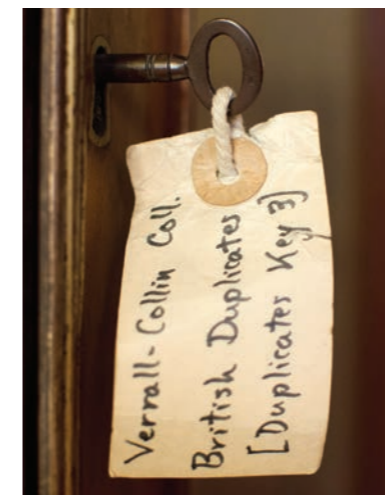 Verrall-Collin Coll.
British Duplicates
[Duplicates Key 3]